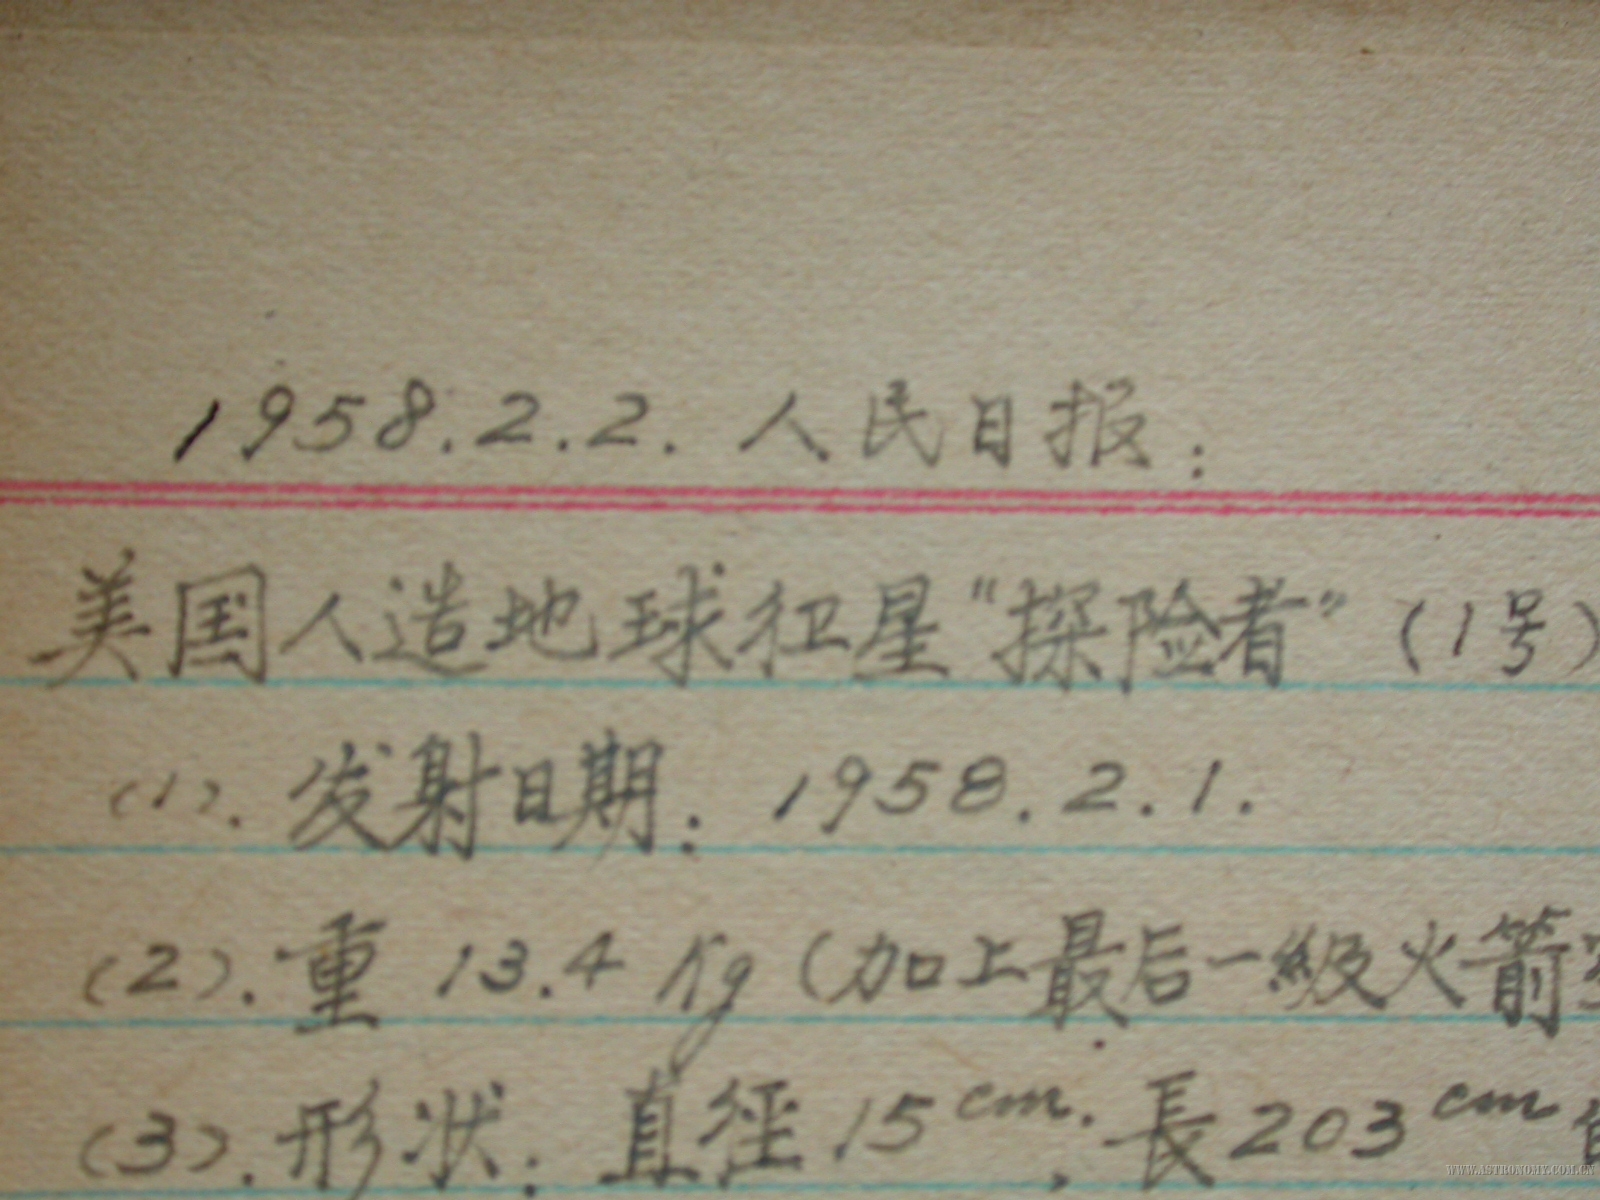 1958.2.2. 人民日报:
美国人造地球卫星"探险者"(1号)
(1). 发射日期: 1958.2.1.
(2). 重 13.4 Kg (加上最后一級火箭
(3). 形状: 直徑 15cm. 長203cm
WWW.ASTRONOMY.COM.CN